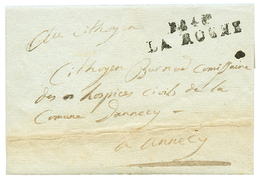 P.84.P.
LA ROCHE
Au Cithoyen
Cithoyen Burnod Comissaire
des hospices Civils de la
Comune Dannecy
a annecy